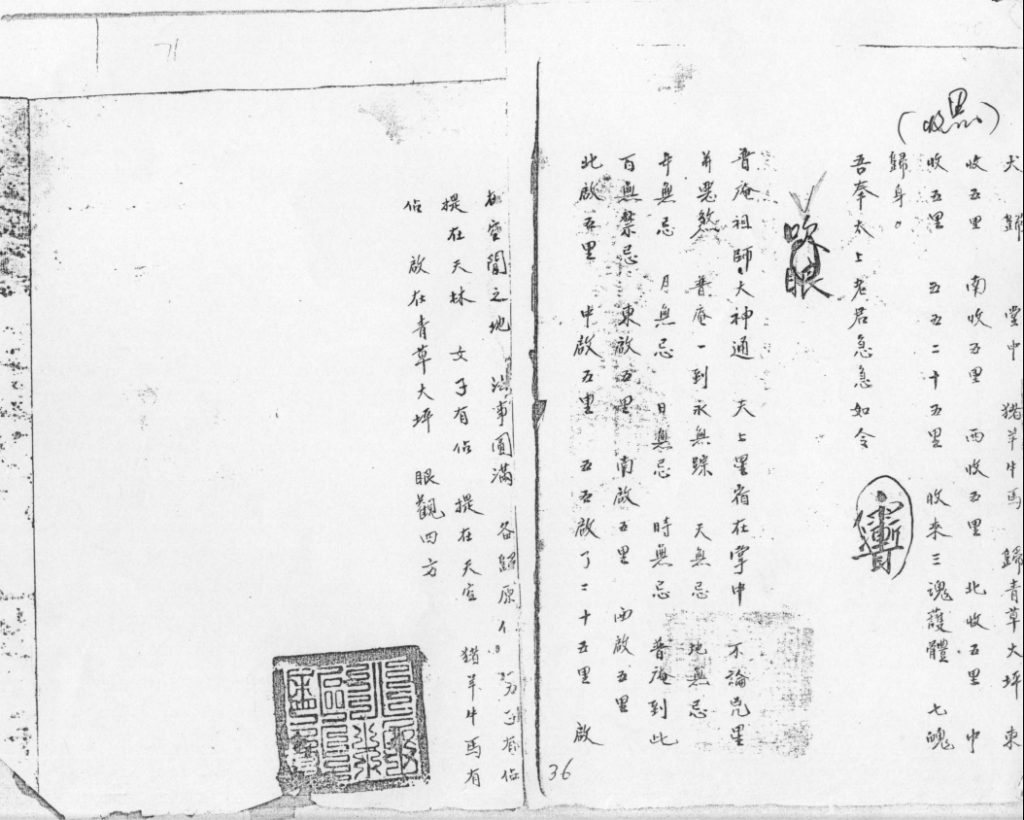 犬歸 堂中 猪羊牛馬 歸青草大坪 東
收五里 南收五里 西收五里 北收五里 中
(收黑)
收五里 五五二十五里 收来三魂護體 七魄
歸身。
吾奉太上老君急急如令
吹眼
普庵祖師大神通 天上星宿在掌中 不論兇星
并惡煞 普庵一到永無踪 天無忌 地無忌
年無忌 月無忌 日無忌 時無忌 普庵到此
百無禁忌 東啟五里 南啟五里 西啟五里
北啟五里 中啟五里 五五啟了二十五里 啟
36
在空間之地 法事圓滿 各歸原位。男子有佔
提在天垓 女子有佔 提在天宫 猪羊牛馬有
佔 啟在青草大坪 眼觀四方
71